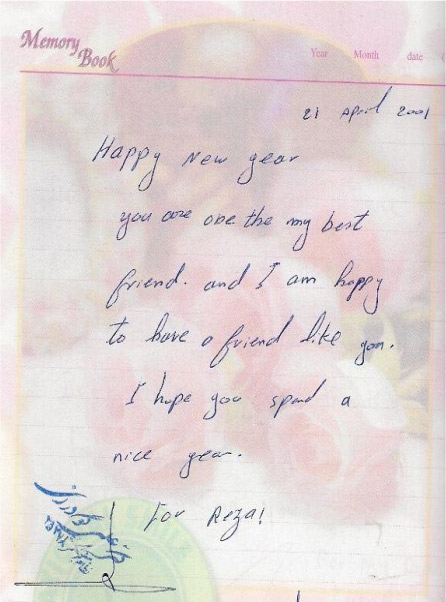 Memory
Book
Year Month date
21 April 2001
Happy New year
you are one the my best
friend. and I am happy
to have a friend like you.
I hope you spend a
nice year.
For Reza!